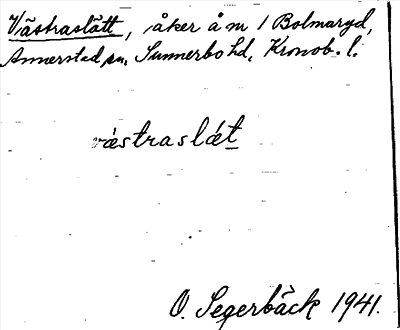 Västraslätt, åker å m 1 Bolmaryd,
Annerstad sn. Sunnerbo hd, Kronob. l.
västraslæt
O. Segerbäck 1941.